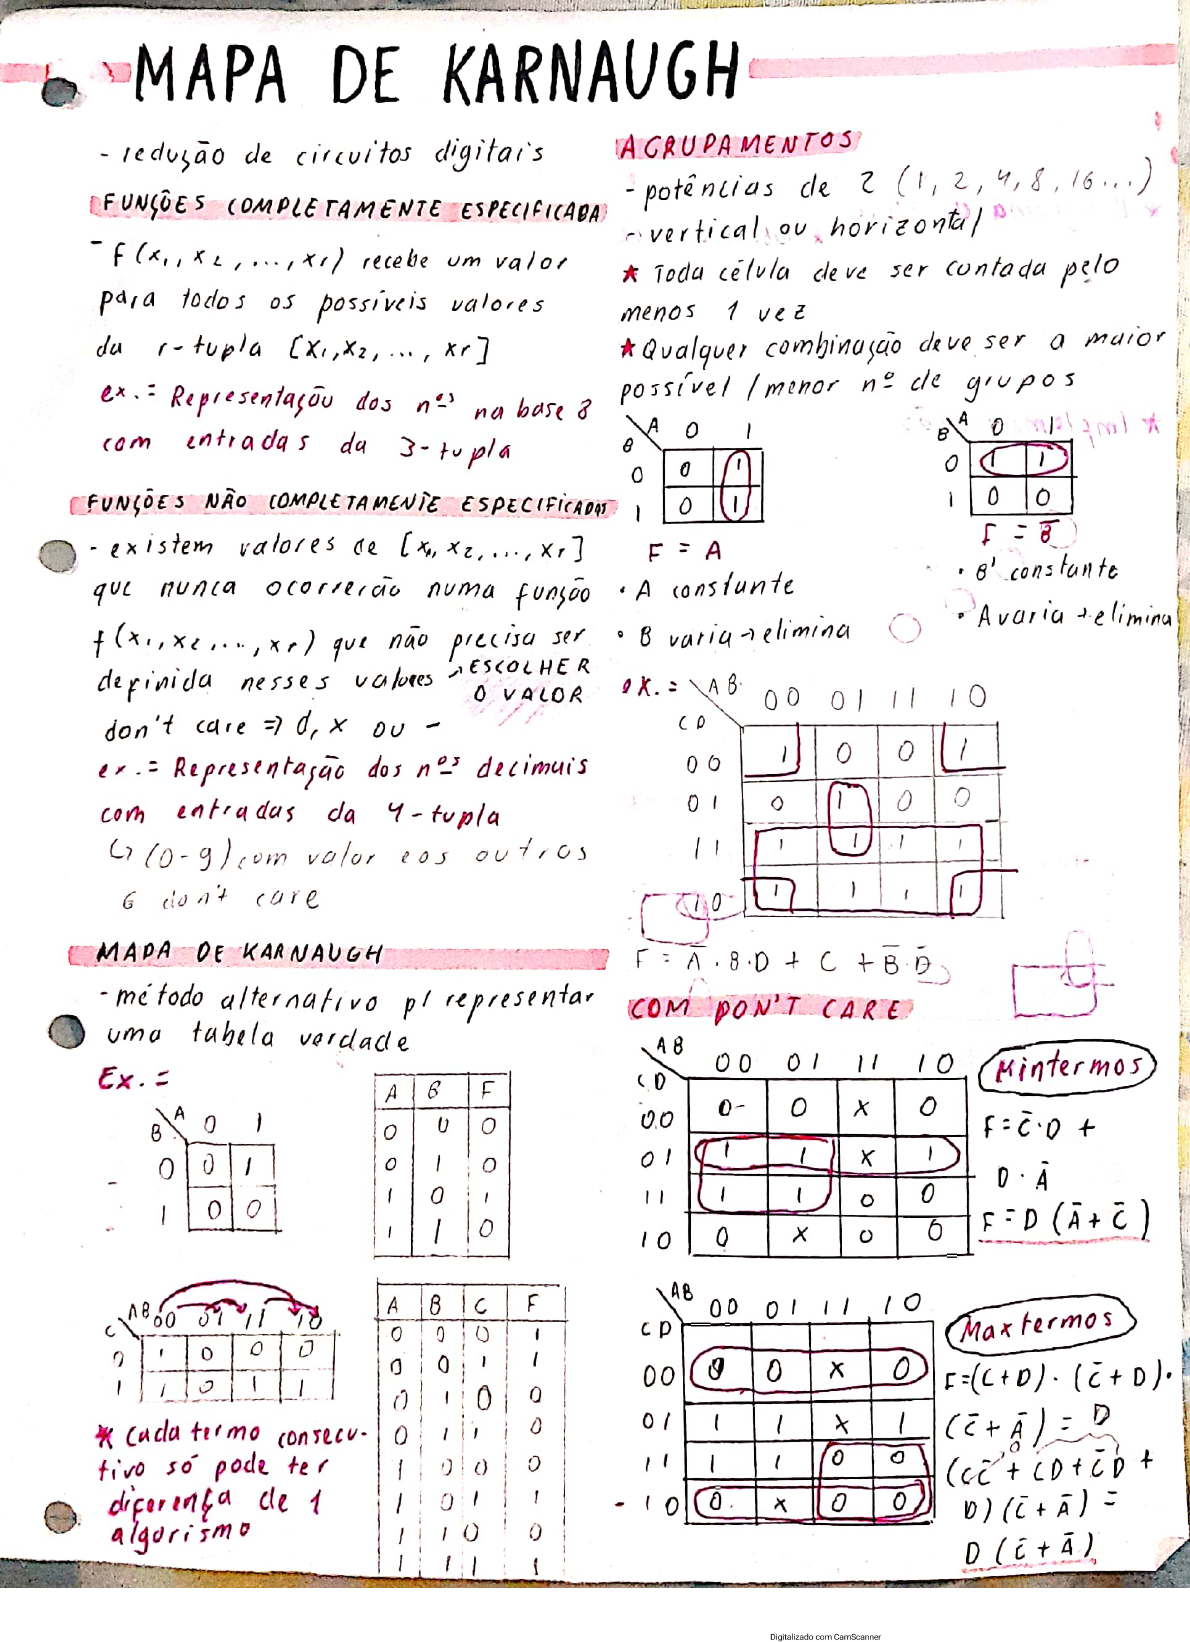 MAPA DE KARNAUGH
- redução de circuitos digitais
FUNÇÕES COMPLETAMENTE ESPECIFICADA
- f(x₁, x₂, ..., xr) recebe um valor
para todos os possíveis valores
da r-tupla [x₁, x₂, ..., xr]
ex.= Representação dos nºs na base 8
com entradas da 3-tupla
FUNÇÕES NÃO COMPLETAMENTE ESPECIFICADAS
- existem valores de [x₁, x₂, ..., xr]
que nunca ocorrerão numa função
f(x₁, x₂, ..., xr) que não precisa ser
definida nesses valores → ESCOLHER
O VALOR
don't care => d, x ou -
ex.= Representação dos nºs decimais
com entradas da 4-tupla
↳ (0-9) com valor e os outros
6 don't care
MAPA DE KARNAUGH
- método alternativo p/ representar
uma tabela verdade
Ex.=
A 0 1
B
0 0 1
1 0 0
A B F
0 0 0
0 1 0
1 0 1
1 1 0
AB 00 01 11 10
C
0 1 0 0 0
1 1 0 1 1
* Cada termo consecu-
tivo só pode ter
diferença de 1
algorismo
A B C F
0 0 0 1
0 0 1 1
0 1 0 0
0 1 1 0
1 0 0 0
1 0 1 1
1 1 0 0
1 1 1 1
AGRUPAMENTOS
- potências de 2 (1, 2, 4, 8, 16...)
- vertical ou horizontal
★ Toda célula deve ser contada pelo
menos 1 vez
★ Qualquer combinação deve ser a maior
possível / menor nº de grupos
A 0 1
B
0 0 1
1 0 1
F = A
• A constante
• B varia → elimina
A 0 1
B
0 1 1
1 0 0
F = B̄
• B' constante
• A varia → elimina
ex.= AB 00 01 11 10
CD
00 1 0 0 1
01 0 1 0 0
11 1 1 1 1
10 1 1 1 1
F = Ā·B·D + C + B̄·D̄
COM DON'T CARE
AB 00 01 11 10
CD
00 0 0 x 0
01 1 1 x 1
11 1 1 0 0
10 0 x 0 0
Mintermos
F = C̄·D +
D·Ā
F = D (Ā + C̄)
AB 00 01 11 10
CD
00 0 0 x 0
01 1 1 x 1
11 1 1 0 0
- 10 0 x 0 0
Maxtermos
F = (C+D)·(C̄+D)·
(C̄+Ā) = D
0
(CC̄ + CD + C̄D +
D)(C̄+Ā) =
D (C̄+Ā)
Digitalizado com CamScanner